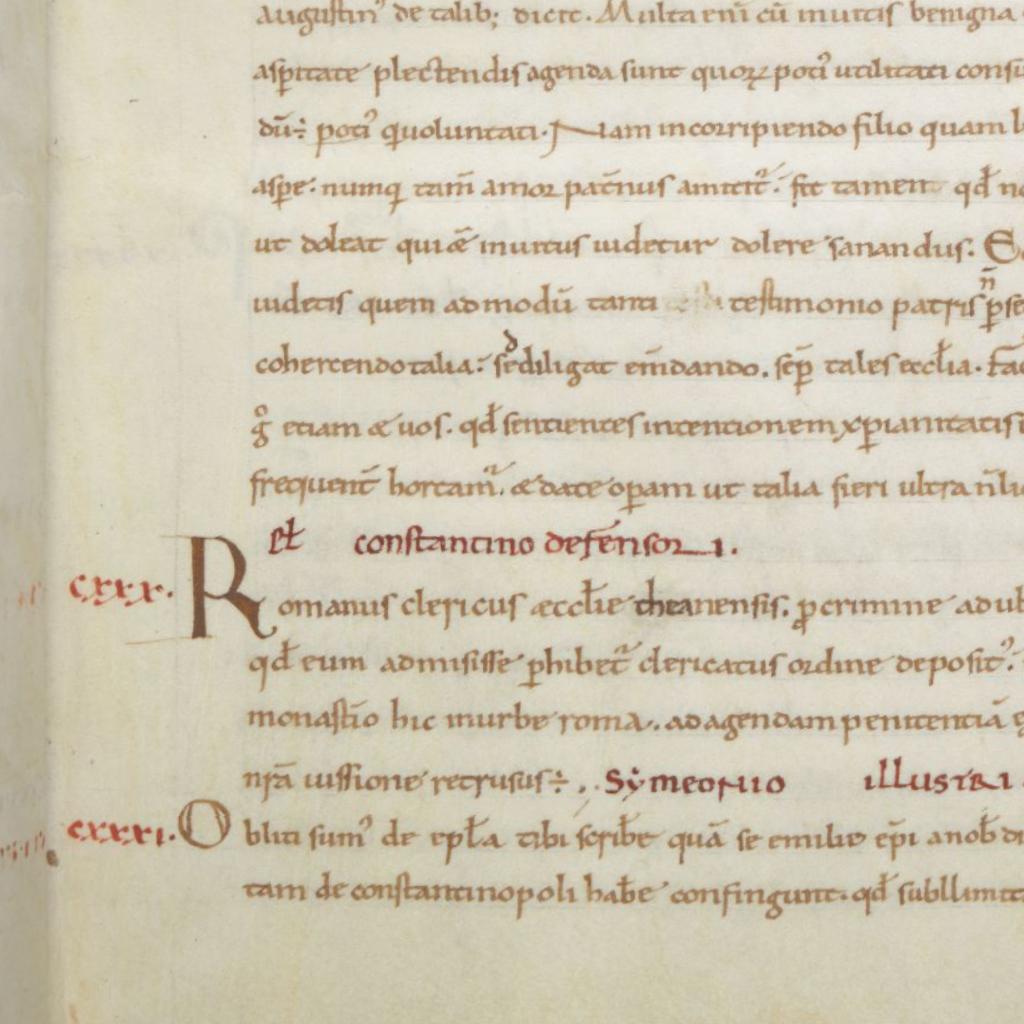 augustin᾽ de talib; dicit. Multa eni cū inuitis benigna
asp̄itate plectendis agenda sunt quoꝝ poti᾽ utilitati consu
dū÷ poti᾽ q̄ uoluntati. Nam incorripiendo filio quam l
aspe. numq tam̄ amor pat̄nus amittit᾽. fit tamen qđ no
ut doleat qui & inuitus uidetur dolere sanandus. S
uidetis quem admodū tanti testimonio patris n̄ p̄se
cohercendo talia. sed diligat em̄dando. sep̄ tales eccl̄ia. fa
g° etiam & uos. qđ sentientes intentionem xp̄ianitatis
frequent̄ hortam᾽. & date op̄am ut talia fieri ultra n̄ li
et constantino defensori.
cxxx. Romanus clericus æccl̄ie theanensis. ꝓcrimine adul
qđ eum admisisse p̄hibet᾽ clericatus ordine deposit᾽.
monast̄io hic inurbe roma. adagendam penitentiā
nr̄a iussione retrusus÷. Symeonio illustri
cxxxi. Obliti sum᾽ de ep̄la tibi scribe quā se emilie ep̄i anob̄ di
tam deconstantinopoli hab̄e confingunt. qđ subllimita